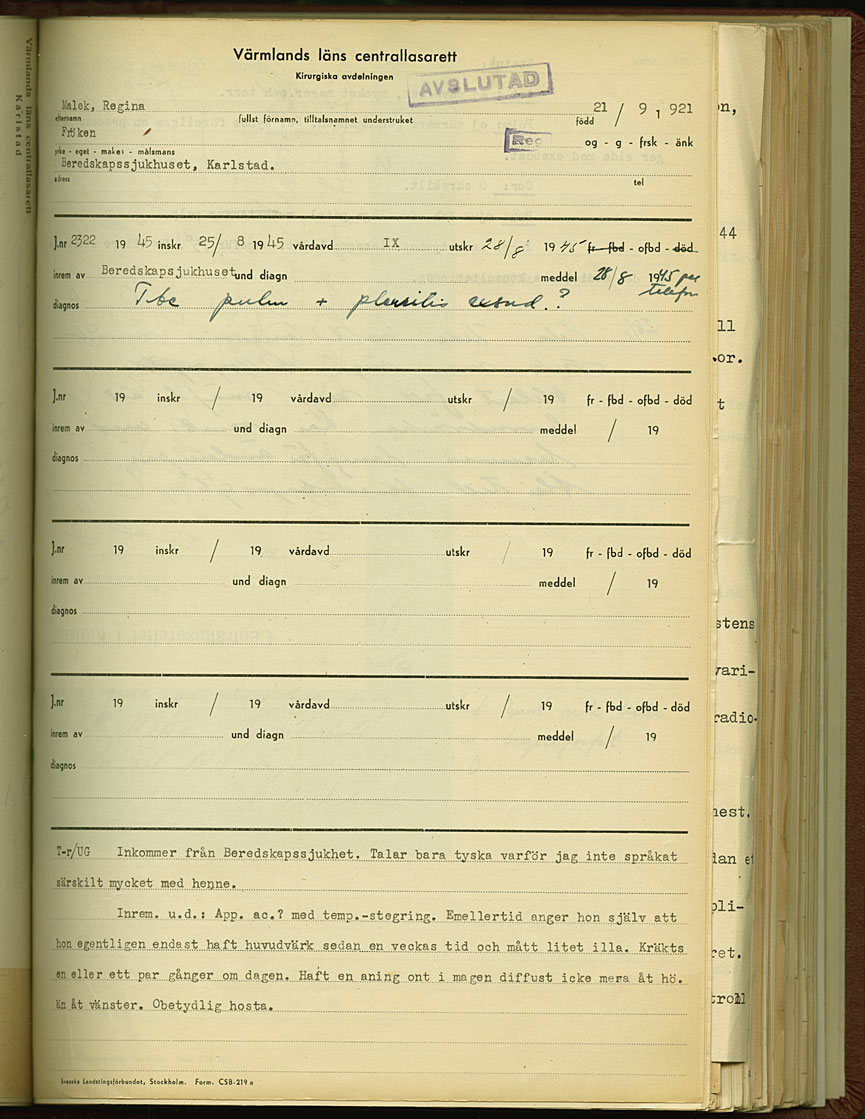 Värmlands läns centrallasarett
Karlstad
Värmlands läns centrallasarett
Kirurgiska avdelningen
AVSLUTAD
Malek, Regina 21 / 9 1921
efternamn fullst förnamn, tilltalsnamnet understruket född
Fröken Reg og - g - frsk - änk
yrke - eget - makes - målsmans
Beredskapssjukhuset, Karlstad.
adress tel
J.nr 2322 1945 inskr 25/ 8 1945 vårdavd IX utskr 28/8 1945 fr - fbd - ofbd - död
inrem av Beredskapsjukhuset und diagn meddel 28/8 1945 per
telefon
diagnos Tbc pulm + pleuritis exsud.?
J.nr 19 inskr / 19 vårdavd utskr / 19 fr - fbd - ofbd - död
inrem av und diagn meddel / 19
diagnos
J.nr 19 inskr / 19 vårdavd utskr / 19 fr - fbd - ofbd - död
inrem av und diagn meddel / 19
diagnos
J.nr 19 inskr / 19 vårdavd utskr / 19 fr - fbd - ofbd - död
inrem av und diagn meddel / 19
diagnos
T-r/UG Inkommer från Beredskapssjukhet. Talar bara tyska varför jag inte språkat
särskilt mycket med henne.
Inrem. u.d.: App. ac.? med temp.-stegring. Emellertid anger hon själv att
hon egentligen endast haft huvudvärk sedan en veckas tid och mått litet illa. Kräkts
en eller ett par gånger om dagen. Haft en aning ont i magen diffust icke mera åt hö.
än åt vänster. Obetydlig hosta.
Svenska Landstingsförbundet, Stockholm. Form. CSB-219 a
44